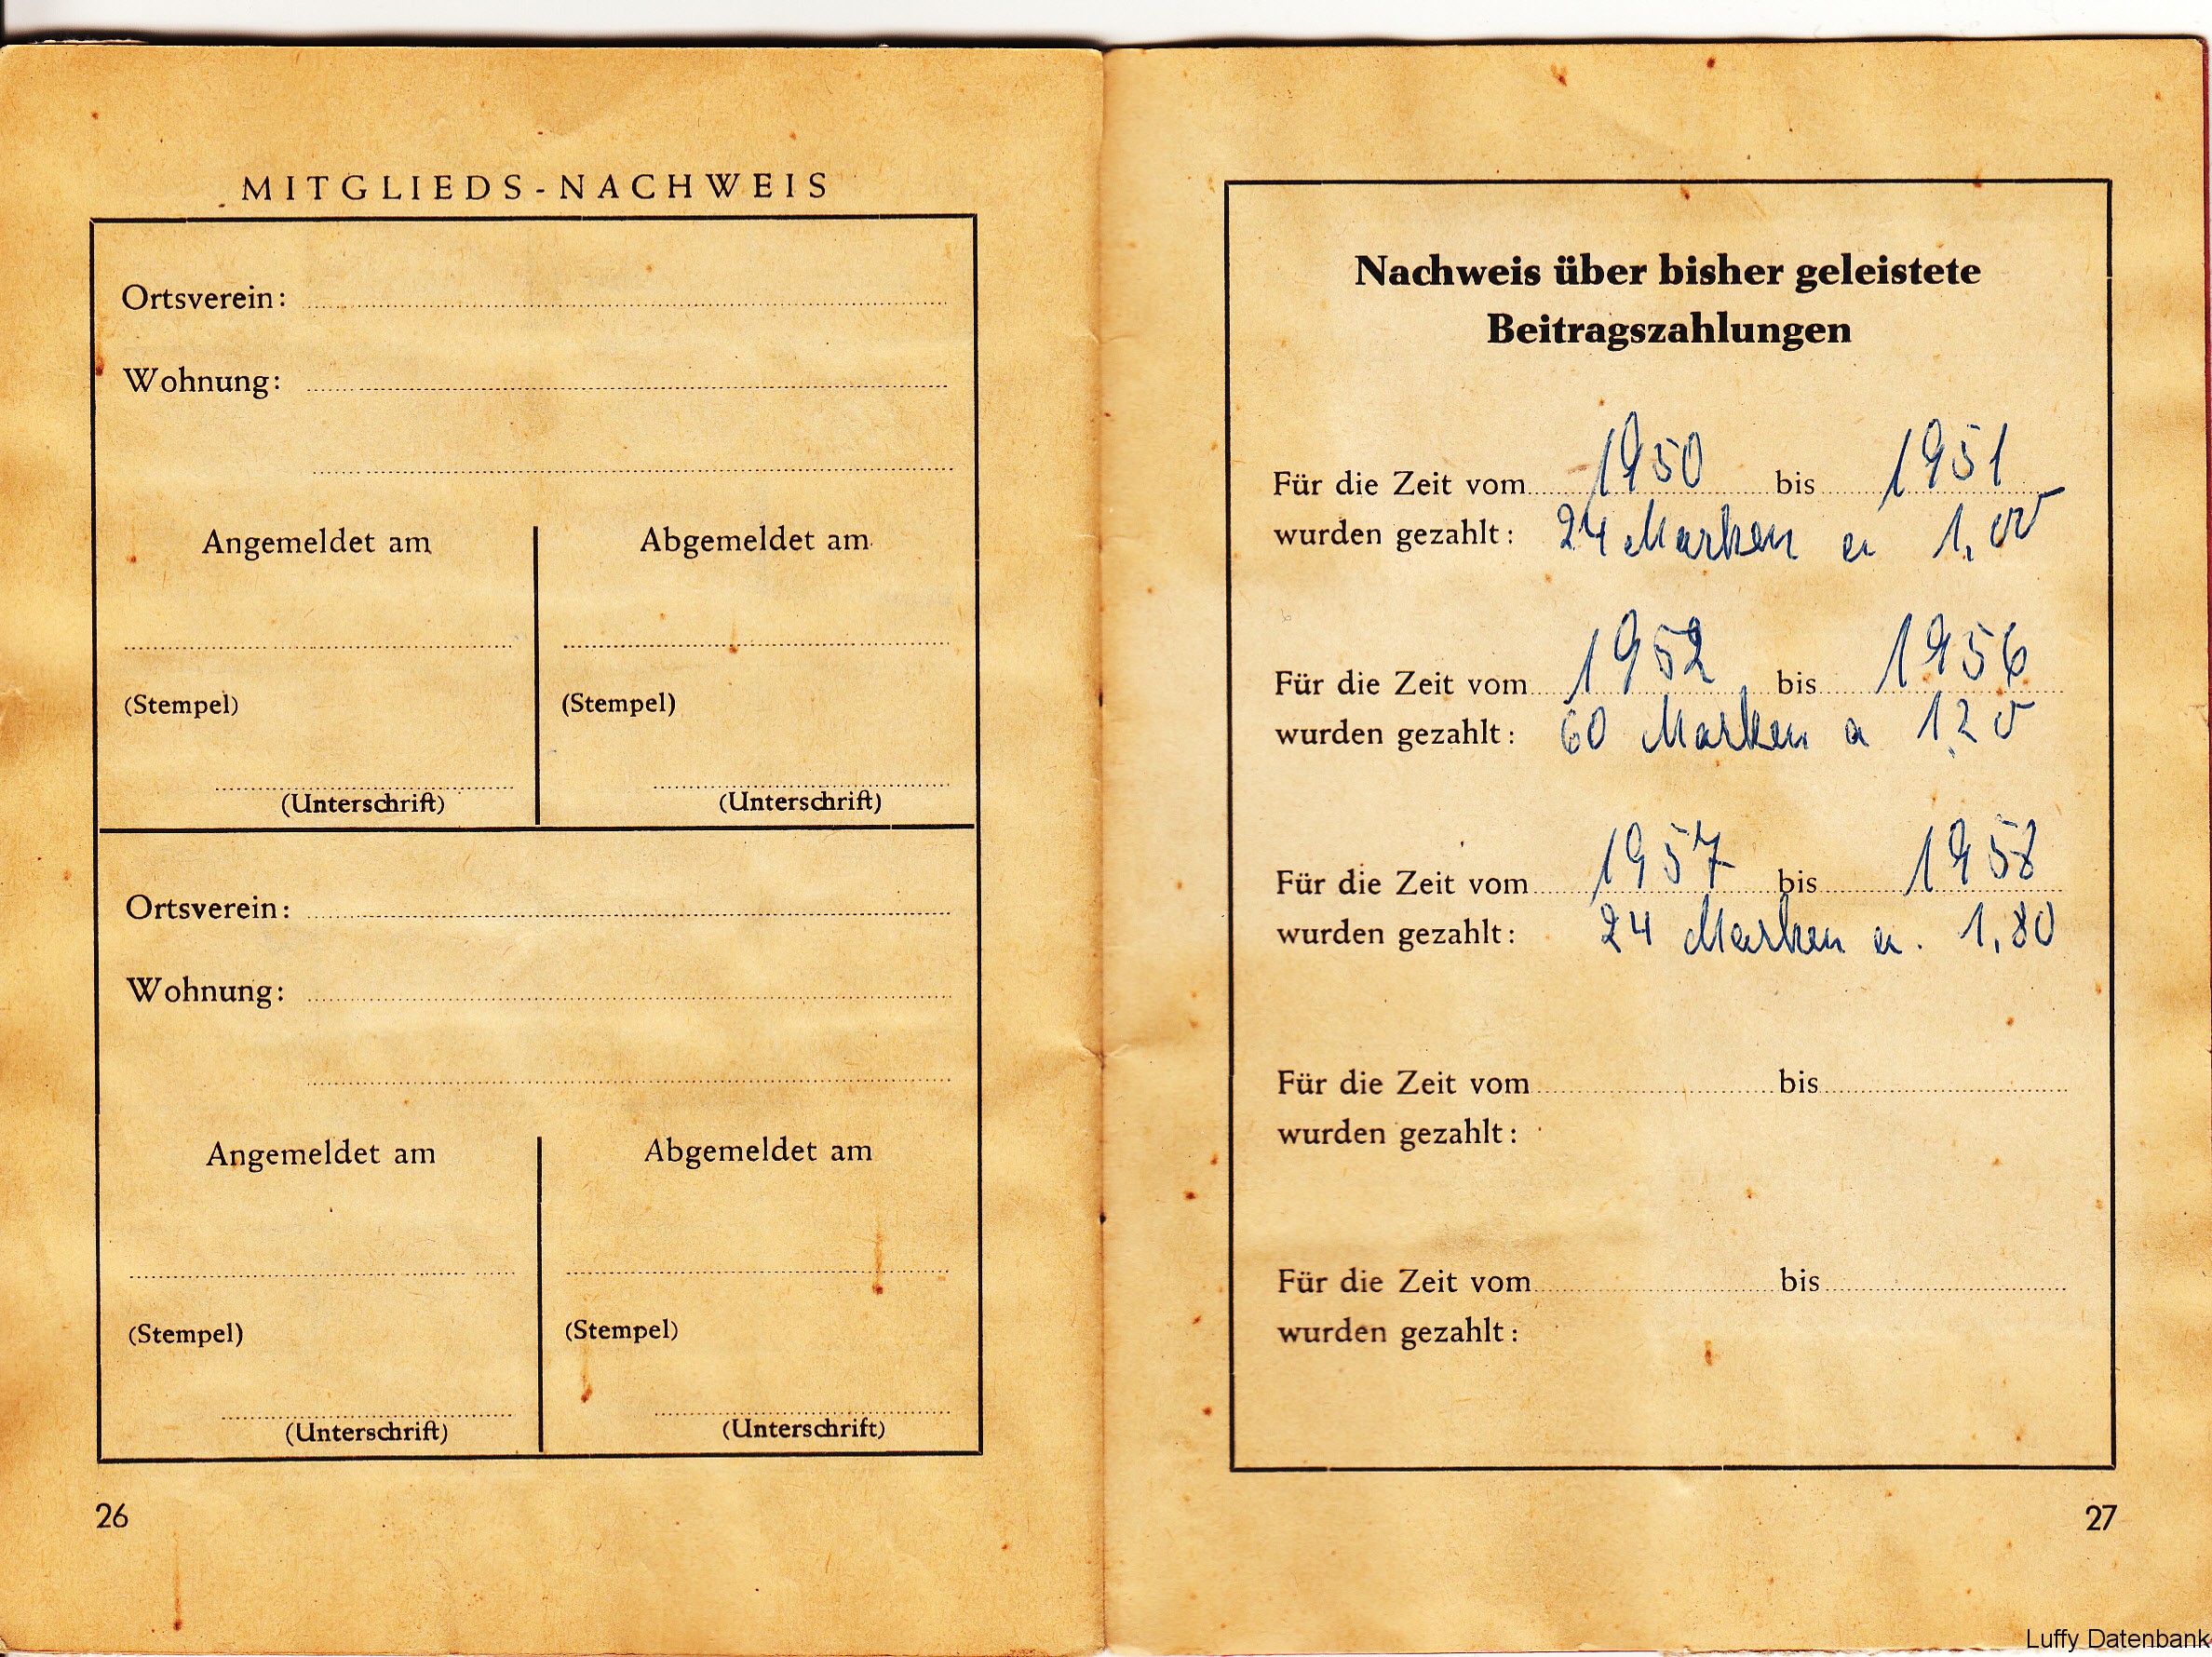 MITGLIEDS-NACHWEIS
Ortsverein:
Wohnung:
Angemeldet am
Abgemeldet am
(Stempel)
(Stempel)
(Unterschrift)
(Unterschrift)
Ortsverein:
Wohnung:
Angemeldet am
Abgemeldet am
(Stempel)
(Stempel)
(Unterschrift)
(Unterschrift)
26
Nachweis über bisher geleistete
Beitragszahlungen
Für die Zeit vom 1950 bis 1951
wurden gezahlt: 24 Marken a 1,00
Für die Zeit vom 1952 bis 1956
wurden gezahlt: 60 Marken a 1,20
Für die Zeit vom 1957 bis 1958
wurden gezahlt: 24 Marken a. 1,80
Für die Zeit vom bis
wurden gezahlt:
Für die Zeit vom bis
wurden gezahlt:
27
Luffy Datenbank